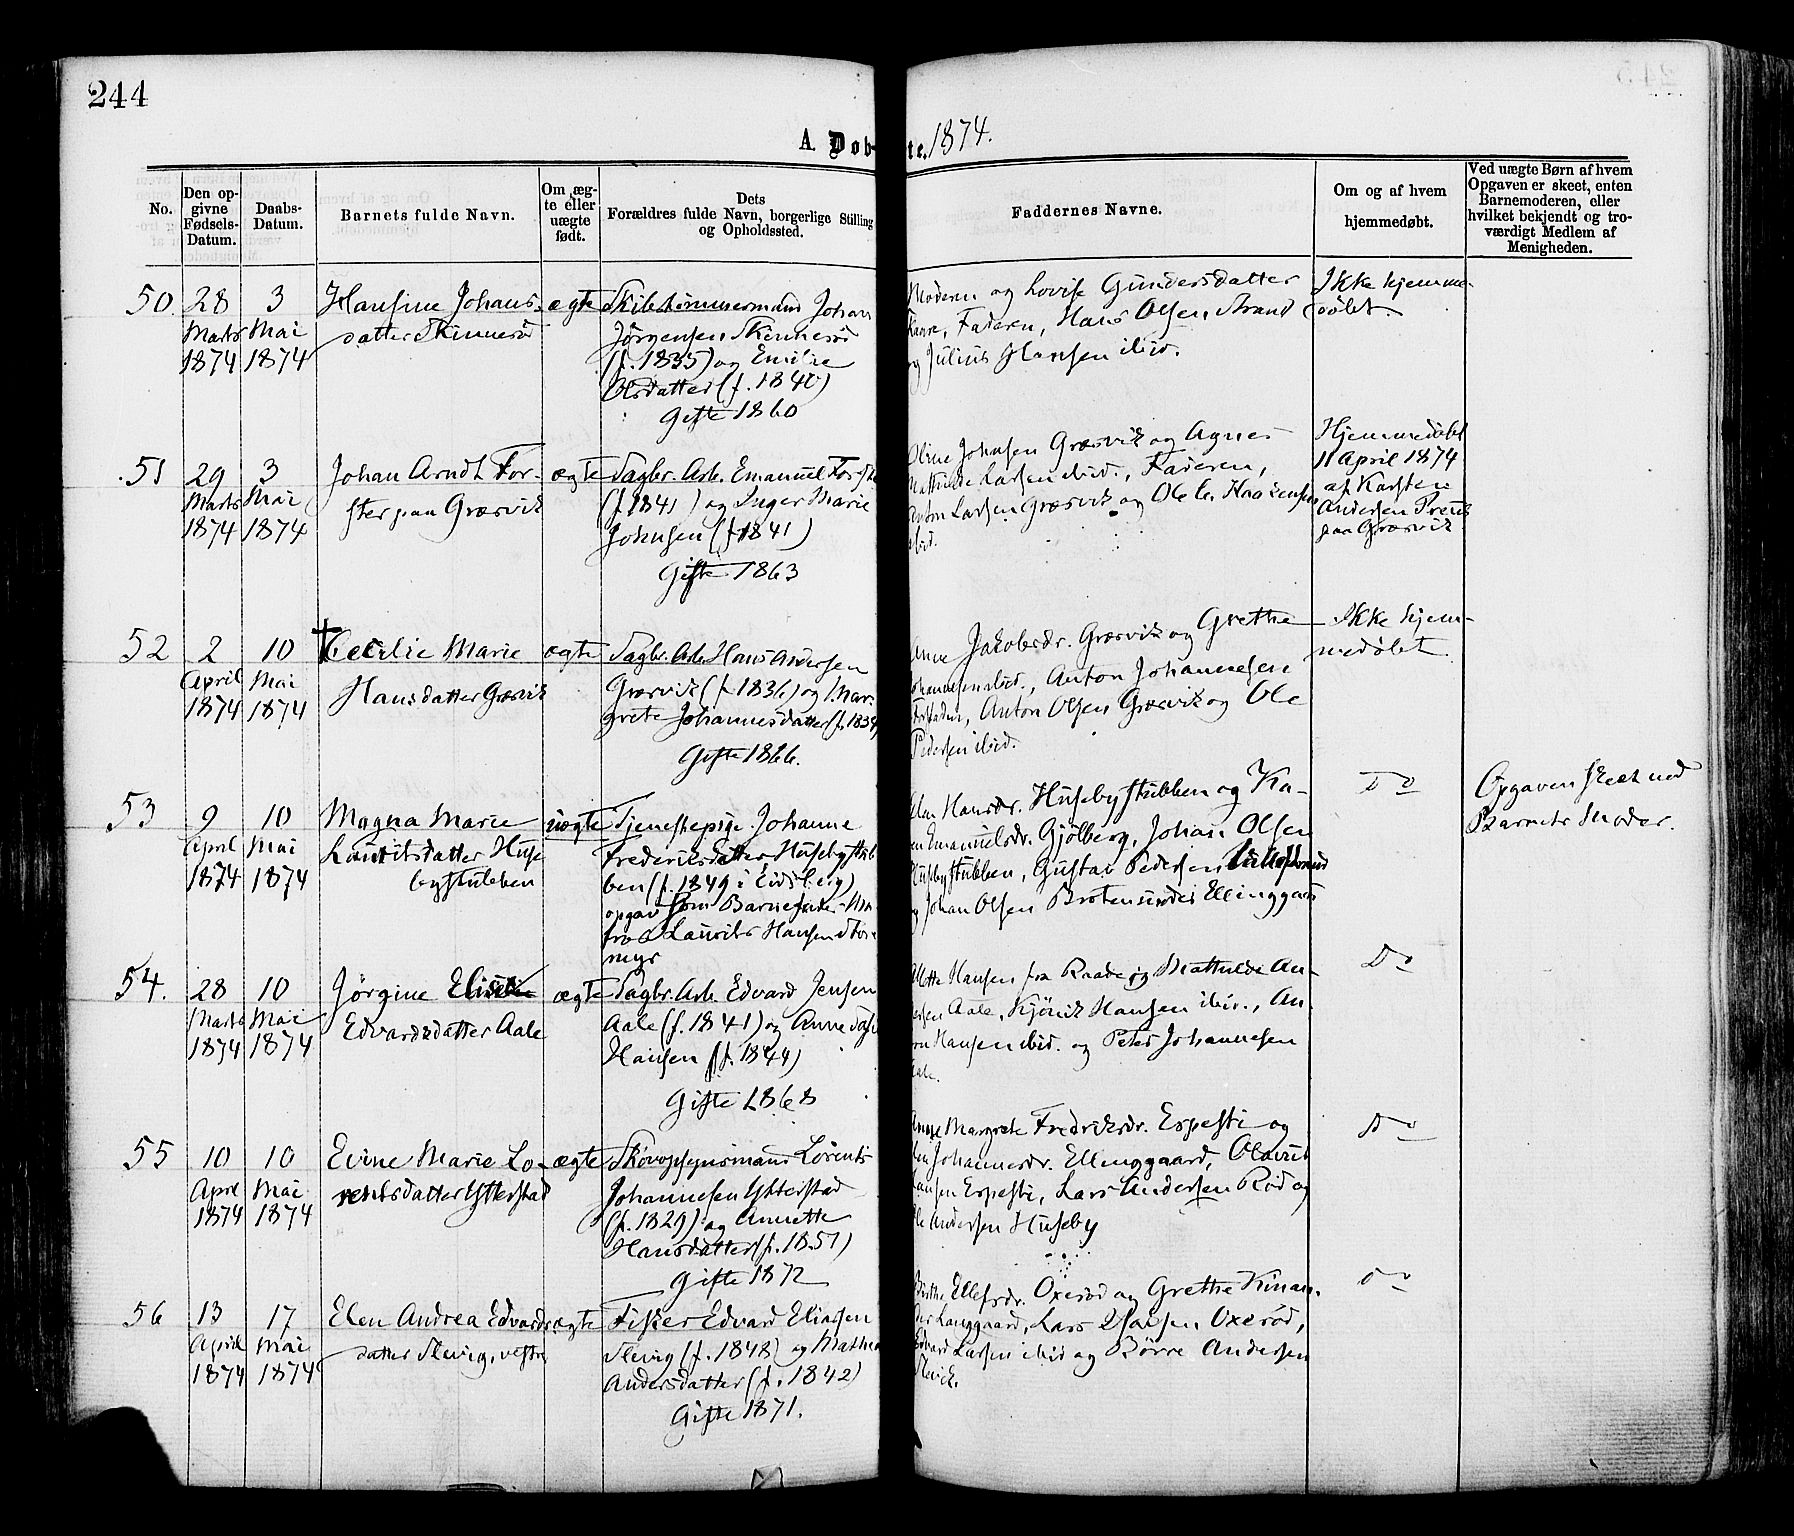 244
A. Døb-te. 1874.
No.
Den op-
givne
Fødsels-
Datum.
Daabs-
Datum.
Barnets fulde Navn.
Om æg-
te eller
uægte
født.
Dets
Forældres fulde Navn, borgerlige Stilling
og Opholdssted.
Faddernes Navne.
Om og af hvem
hjemmedøbt.
Ved uægte Børn af hvem
Opgaven er skeet, enten
Barnemoderen, eller
hvilket bekjendt og tro-
værdigt Medlem af
Menigheden.
50.
28
Marts
1874
3
Mai
1874
Hansine Johans-
datter Skinnerød
ægte
Skibstømmermand Johan
Jørgensen Skinnerød
(f. 1835) og Emilie
Olsdatter (f. 1840)
Gifte 1860
Moderen og Lovise Gundersdatter
Faderen, Hans Olsen Strand
og Julius Hansen ibid.
Ikke hjemme-
døbt
51
29
Marts
1874
3
Mai
1874
Johan Arndt For-
ster paa Græsvik
ægte
Sagbr. Arb. Emanuel Forster
(f. 1841) og Inger Marie
Johnsen (f. 1841)
Gifte 1863
Oline Johnsen Græsvik og Agnes
Mathilde Larsen ibid., Faderen,
Anton Larsen Græsvik og Ole Chr. Haakensen
ibid.
Hjemmedøbt
11 April 1874
af Karsten
Andersen
paa Græsvik
52
2
April
1874
10
Mai
1874
† Cecilie Marie
Hansdatter Græsvik
ægte
Sagbr. Arb. Hans Andersen
Græsvik (f. 1836) og Mar-
grete Johannesdatter (f. 1839)
Gifte 1866.
Anne Jakobsdr. Græsvik og Grethe
Johannesen ibid., Anton Johannesen
Anton Olsen Græsvik og Ole
Pedersen ibid.
Ikke hjem-
medøbt
53
9
April
1874
10
Mai
1874
Magna Marie
Lauritsdatter Huse-
bystubben
uægte
Tjenestepige Johanne
Frederiksdatter Husebystub-
ben (f. 1849 i Eidsberg)
opgav som Barnefader
fra Laurits Hansen
myr
Elen Hansdr. Husebystubben og Ka-
ren Emanuelsdr. Gjølberg, Johan Olsen
Husebystubben, Gustav Pedersen
og Johan Olsen Brotensundet Ellinggaard
Do
Opgaven skeet ved
Barnets Moder.
54.
28
Marts
1874
10
Mai
1874
Jørgine Elise
Edvardsdatter Aale
ægte
Sagbr. Arb. Edvard Jensen
Aale (f. 1841) og Anne
Hansen (f. 1844)
Gifte 1868
Lotte Hansen fra Raade og Mathilde An-
dersen Aale, Hansen ibid., An-
ton Hansen ibid. og Peter Johannesen
Aale.
Do
55
10
April
1874
10
Mai
1874
Evine Marie Lo-
rentsdatter Ytterstad
ægte
Skovopsynsmand Lørents
Johannesen Ytterstad
(f. 1829) og Annette
Hansdatter (f. 1851)
Gifte 1872
Anne Margrete Fredriksdr. Espesti og
Elen Johannesdr. Ellinggaard, Olavus
Hansen Espesti, Lars Andersen Rød og
Ole Andersen Huseby
Do
56
13
April
1874
17
Mai
1874
Elen Andrea Edvards-
datter Slevig, vestre
ægte
Fisker Edvard Eliassen
Slevig (f. 1848) og Mathea
Andersdatter (f. 1842)
Gifte 1871.
Birthe Ellefsdr. Oxerød og Grethe Kinan-
der Langgaard, Lars Olausen Oxerød,
Edvard Larsen ibid og Børre Andersen
Slevik.
Do